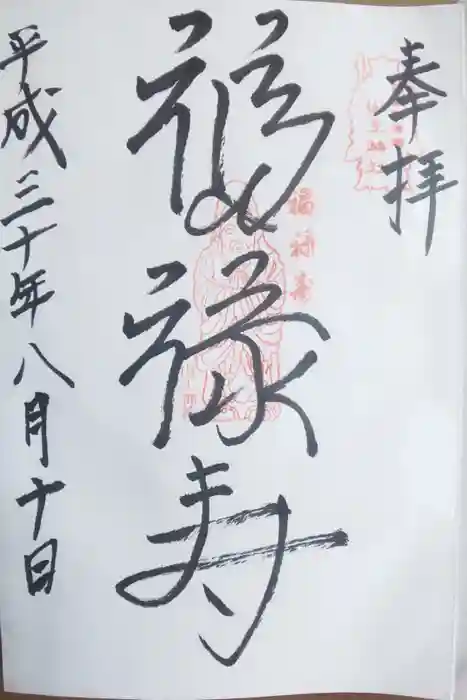 奉拝
福禄寿
福禄寿
平成三十年八月十日